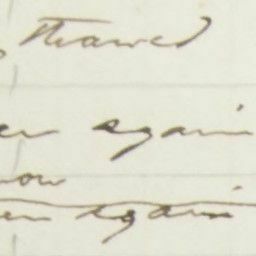 thawed
er again
now
en again